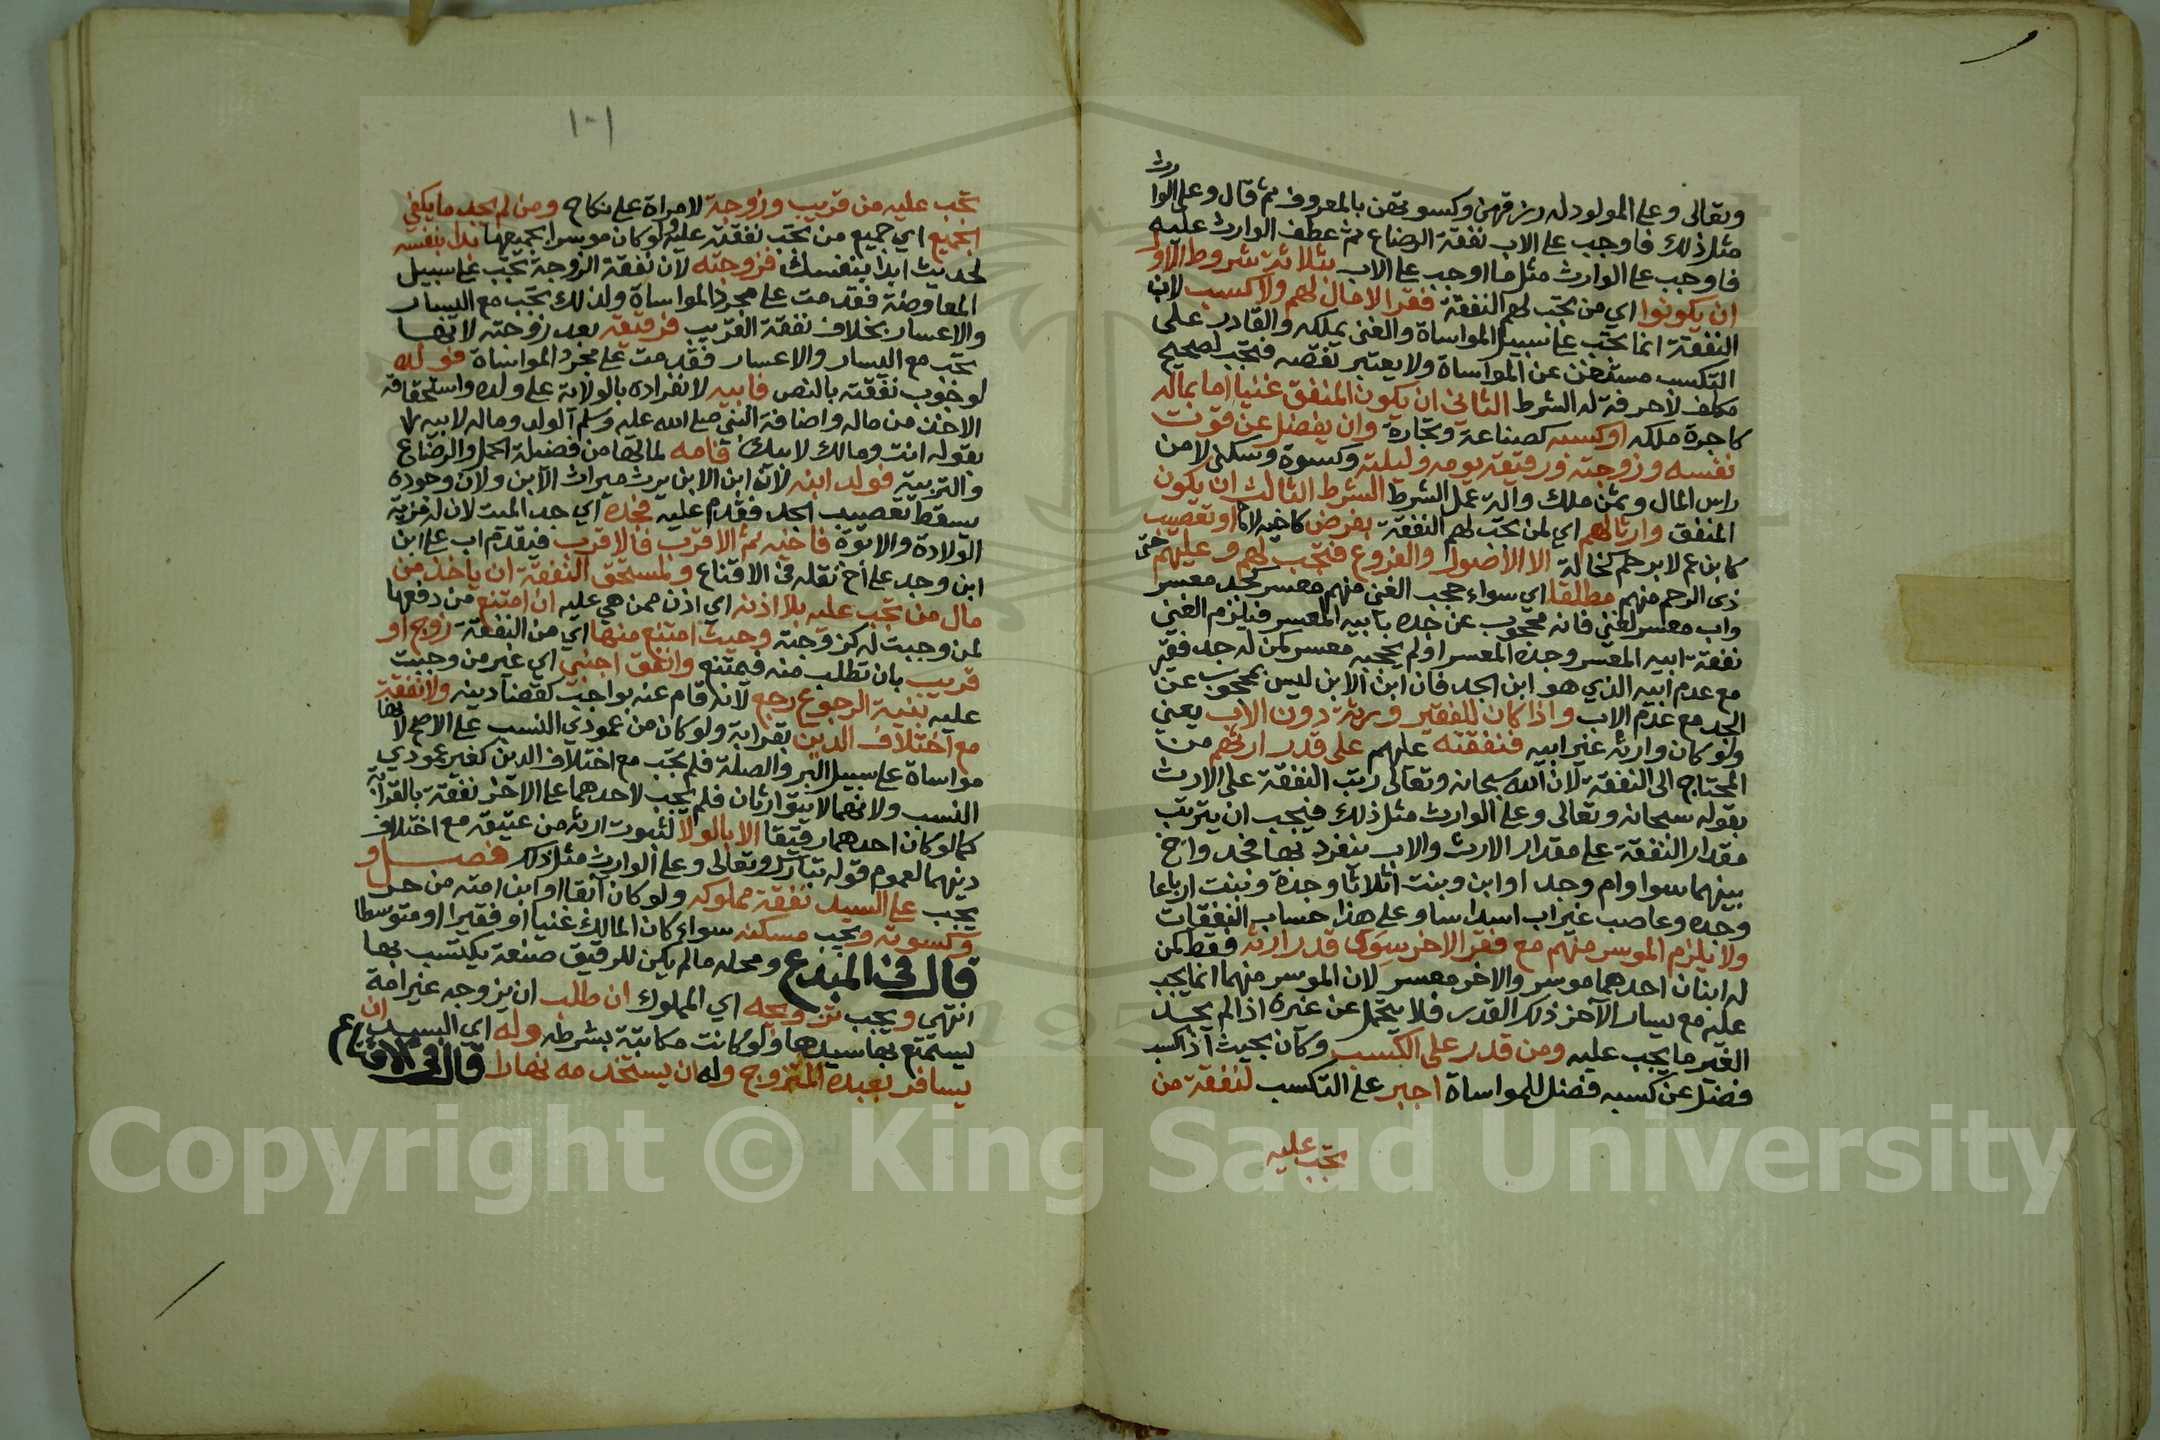 وتعالى وعلى المولود له رزقهن وكسوتهن بالمعروف ثم قال وعلى الوارث
مثل ذلك فاوجب على الاب نفقة الرضاع ثم عطف الوارث عليه
فاوجب على الوارث مثل ما اوجب على الاب بثلاثة شروط الاول
ان يكونوا اي من تجب لهم النفقة فقرا لا مال لهم ولا كسب لان
النفقة انما تجب على سبيل المواساة والغني بملكه والقادر على
التكسب مستغن عن المواساة ولا يعتبر نقصه فتجب لصحيح
مكلف لا حرفة له الشرط الثاني ان يكون المنفق غنيا اما بماله
كاجرة ملكه او كسبه كصناعة وتجارة وان يفضل عن قوت
نفسه وزوجته ورقيقه يومه وليلته وكسوة وسكنى لا من
راس المال وثمن ملك والة عمل الشرط الثالث ان يكون
المنفق وارثا لهم اي لمن تجب لهم النفقة بفرض كاخيه لام او تعصيب
كابن عم لا برحم كخالة الا الاصول والفروع فتجب لهم وعليهم حتى
ذي الرحم منهم مطلقا اي سواء حجب الغني منهم معسر كجد معسر
واب معسر لغني فانه محجوب عن جده بابيه المعسر فيلزم الغني
نفقة ابيه المعسر وجده المعسر او لم يحجبه معسر كمن له جد فقير
مع عدم ابيه الذي هو ابن الجد فان ابن الابن ليس بمحجوب عن
الجد مع عدم الاب واذا كان للفقير ورثة دون الاب يعني
ولو كان وارثه غير ابيه فنفقته عليهم على قدر ارثهم من
المحتاج الى النفقة لان الله سبحانه وتعالى رتب النفقة على الارث
بقوله سبحانه وتعالى وعلى الوارث مثل ذلك فيجب ان يترتب
مقدار النفقة على مقدار الارث والاب ينفرد بها فجد واخ
بينهما سوا وام وجد او ابن وبنت اثلاثا وجدة وبنت ارباعا
وجده وعاصب غير اب اسداسا وعلى هذا حساب النفقات
ولا يلزم الموسر منهم مع فقر الاخر سوى قدر ارثه فقط كمن
له ابنان احدهما موسر والاخر معسر لان الموسر منهما انما يجب
عليه مع يسار الآخر ذلك القدر فلا يتحمل عن غيره اذا لم يجد
الغير ما يجب عليه ومن قدر على الكسب وكان بحيث اذا اكتسب
فضل عن كسبه فضل للمواساة اجبر على التكسب لنفقة من
تجب عليه
١٠١
تجب عليه من قريب وزوجة لا امراة على نكاح ومن لم يجد ما يكفي
الجميع اي جميع من تجب نفقته عليه ولو كان موسرا بجميعها بدا بنفسه
لحديث ابدا بنفسك فزوجته لان نفقة الزوجة تجب على سبيل
المعاوضة فقدمت على مجرد المواساة ولذلك تجب مع اليسار
والاعسار بخلاف نفقة القريب فرقيقه بعد زوجته لانها
تجب مع اليسار والاعسار فقدمت على مجرد المواساة فولده
لوجوب نفقته بالنص فابيه لانفراده بالولاية على ولده واستحقاقه
الاخذ من ماله واضافة النبي صلى الله عليه وسلم الولد وماله لابيه
بقوله انت ومالك لابيك فامه لما لها من فضيلة الحمل والرضاع
والتربية فولد ابنه لان ابن الابن يرث ميراث الابن ولان وجوده
يسقط تعصيب الجد فقدم عليه فجده اي جد الميت لان له مزية
الولادة والابوة فاخيه ثم الاقرب فالاقرب فيقدم اب على ابن
ابن وجد على أخ نقله في الاقناع ولمستحق النفقة ان ياخذ من
مال من تجب عليه بلا اذنه اي اذن من هي عليه ان امتنع من دفعها
لمن وجبت له كزوجته وحيث امتنع منها اي من النفقة زوج او
قريب بان تطلب منه فيمتنع وانفق اجنبي اي غير من وجبت
عليه بنية الرجوع رجع لانه قام عنه بواجب كقضا دينه ولا نفقة
مع اختلاف الدين بقرابة ولو كان من عمودي النسب على الاصح لانها
مواساة على سبيل البر والصلة فلم تجب مع اختلاف الدين كغير عمودي
النسب ولانهما لا يتوارثان فلم تجب لاحدهما على الآخر نفقة بالقرابة
كما لو كان احدهما رقيقا الا بالولا لثبوت ارثه من عتيقه مع اختلاف
دينهما لعموم قوله تبارك وتعالى وعلى الوارث مثل ذلك فصل و
يجب على السيد نفقة مملوكه ولو كان آبقا او ابن امته من حر
وكسوته ويجب مسكنه سواء كان المالك غنيا او فقيرا او متوسطا
قال في المبدع ومحله ما لم يكن للرقيق صنعة يكتسب بها
انتهى ويجب تزويجه اي المملوك ان طلب ان يزوجه غير امة
يستمتع بها سيدها ولو كانت مكاتبة بشرطه وله اي السيد ان
يسافر بعبده المتزوج وله ان يستخدمه نهارا قال في الاقناع
Copyright © King Saud University
1957